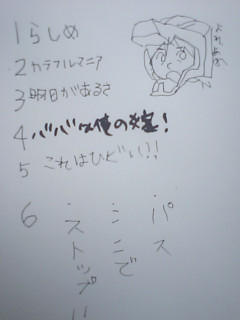 1 らしめ
2 カラフルマニア
3 明日があるさ
4 ババα俺の嫁!
5 これはひどい!!
6
・パス
・ミミで
・ストップ!!